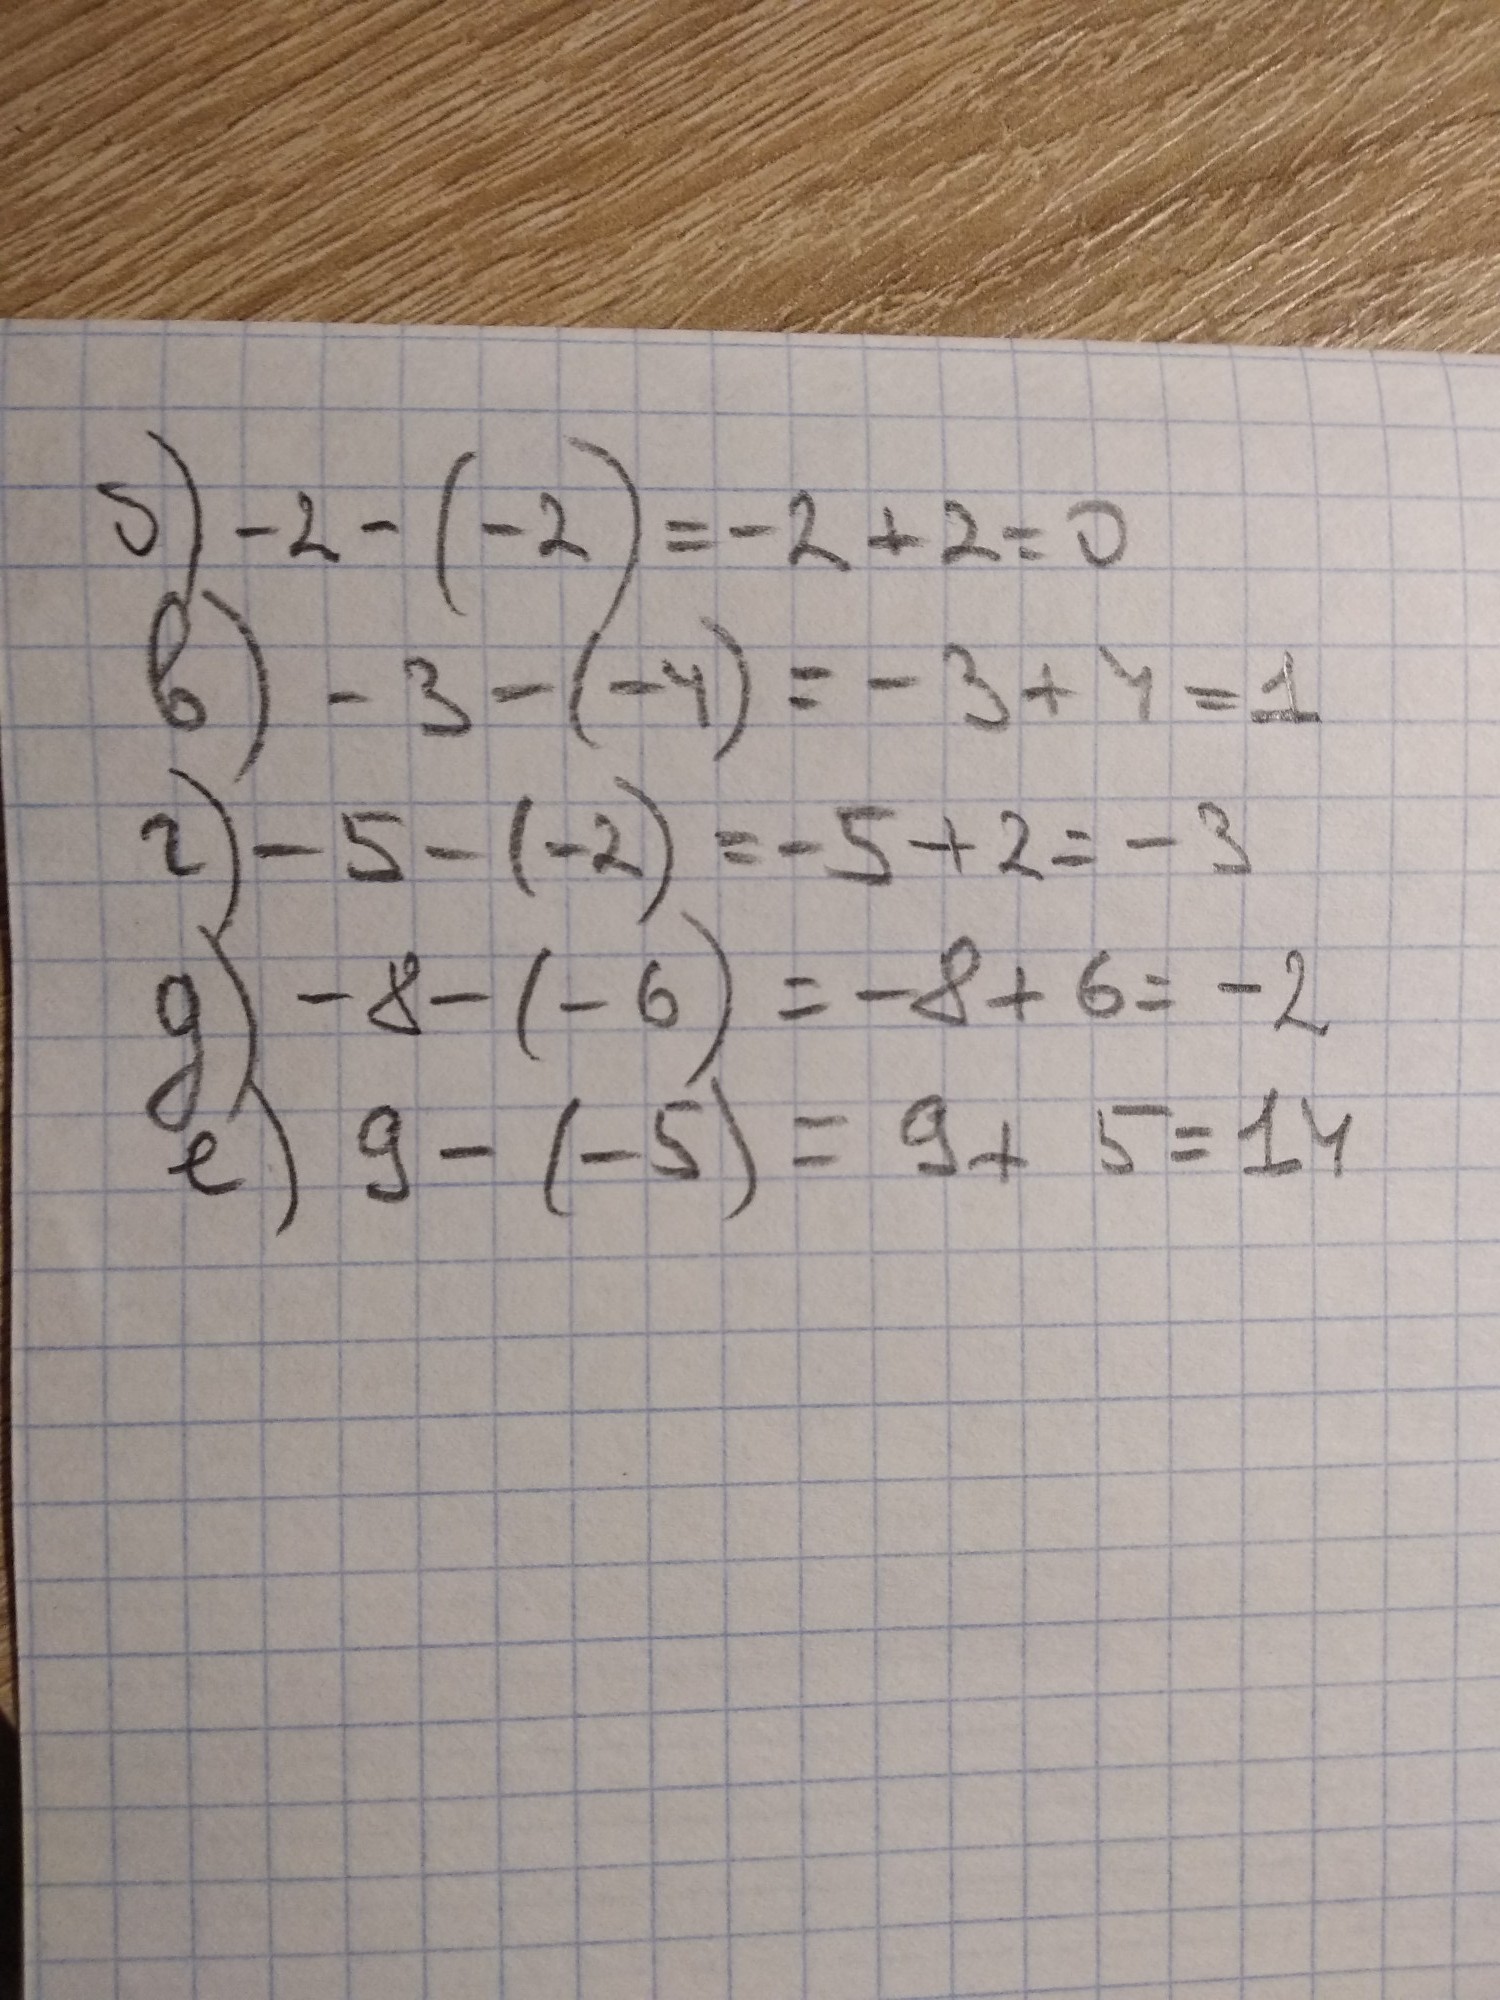 б) -2 - (-2) = -2 + 2 = 0
в) - 3 - (-4) = - 3 + 4 = 1
г) - 5 - (-2) = - 5 + 2 = - 3
д) - 8 - (- 6) = - 8 + 6 = - 2
е) 9 - (- 5) = 9 + 5 = 14